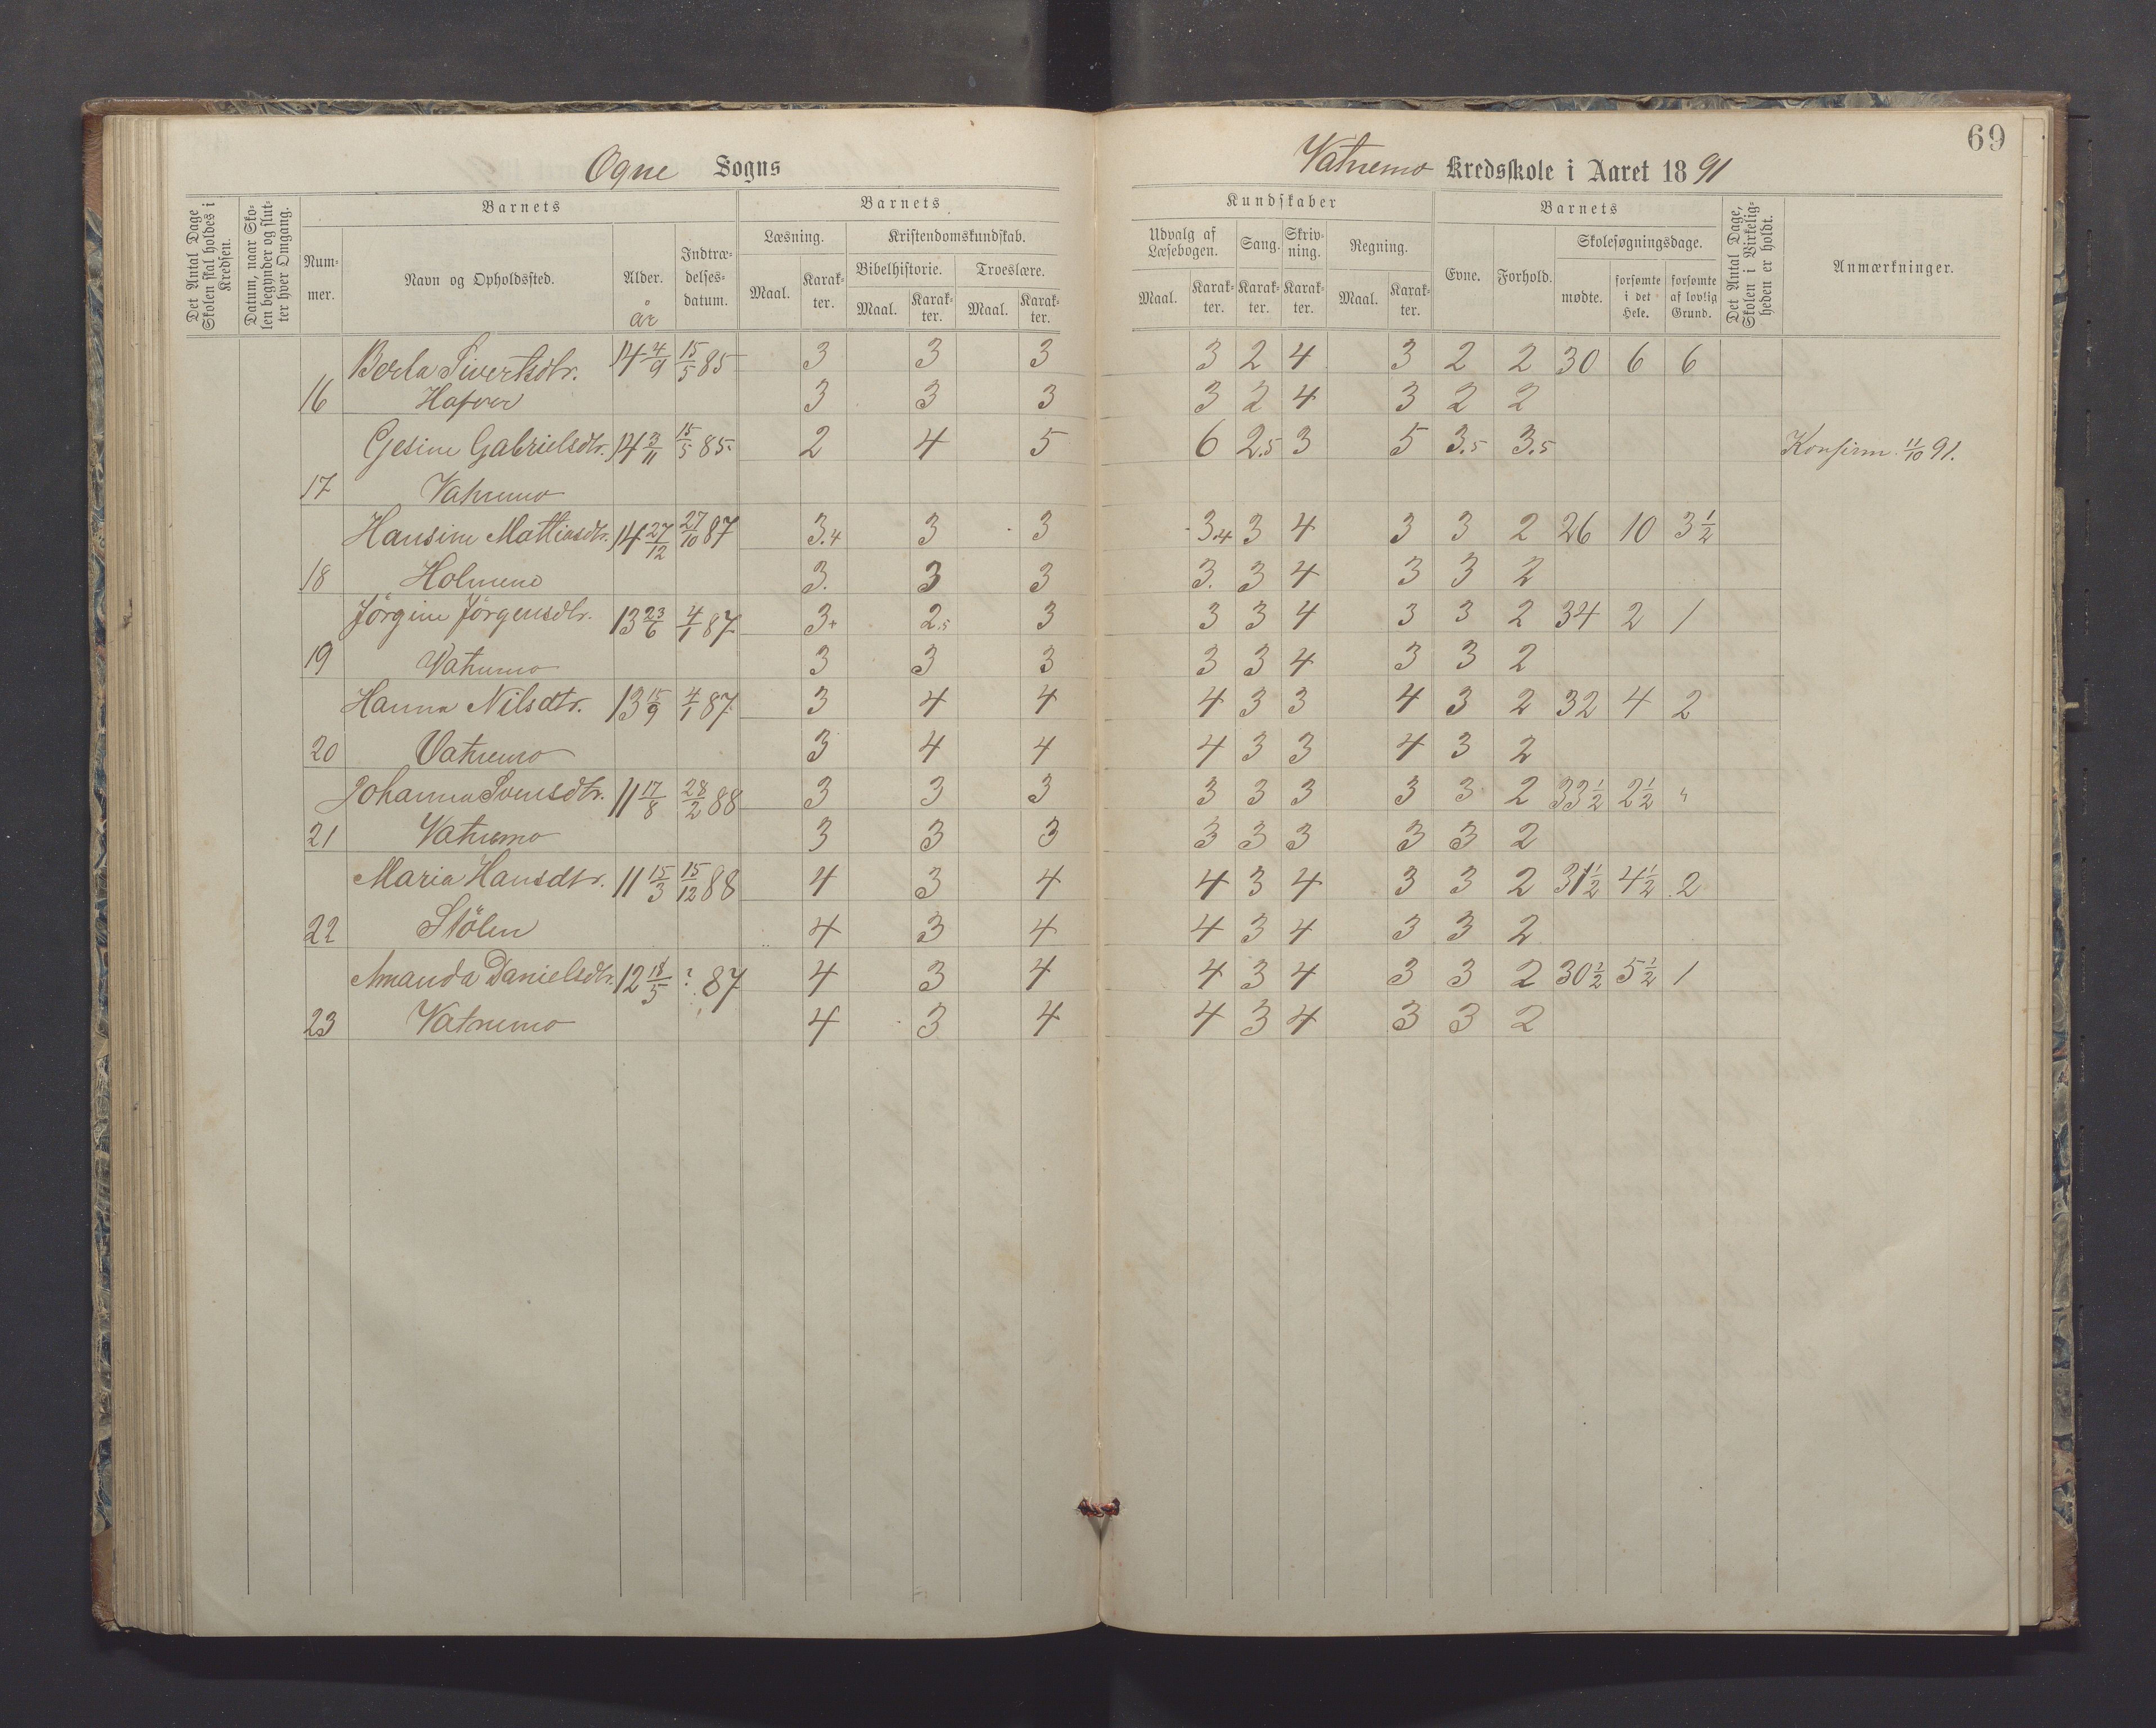 Ogne Sogns
Vatnemo Kredsskole i Aaret 1891
69
Det Antal Dage Skolen skal holdes i Kredsen.
Datum, naar Skolen begynder og slutter hver Omgang.
Barnets
Nummer.
Navn og Opholdssted.
Alder.
år
Indtrædelsesdatum.
Barnets
Læsning.
Maal.
Karakter.
Kristendomskundskab.
Bibelhistorie.
Maal.
Karakter.
Troeslære.
Maal.
Karakter.
Kundskaber
Udvalg af Læsebogen.
Maal.
Karakter.
Sang.
Karakter.
Skrivning.
Karakter.
Regning.
Maal.
Karakter.
Barnets
Evne.
Forhold.
Skolesøgningsdage.
mødte.
forsømte i det Hele.
forsømte af lovlig Grund.
Det Antal Dage, Skolen i Virkeligheden er holdt.
Anmærkninger.
Berla Sivertsdtr. 14 4/9 15/5 85 3 3 3 3 2 4 3 2 2 30 6 6
16 Hafver 3 3 3 3 2 4 3 2 2
Gesine Gabrielsdtr. 14 3/11 15/5 85 2 4 5 6 2.5 3 5 3.5 3.5 Konfirm. 11/10 91.
17 Vatnemo
Hansine Mattiasdtr. 14 27/12 27/10 87 3.4 3 3 3.4 3 4 3 3 2 26 10 3 1/2
18 Holmene 3. 3 3 3. 3 4 3 3 2
Jörgine Jörgensdtr. 13 23/6 4/1 87 3+ 2.5 3 3 3 4 3 3 2 34 2 1
19 Vatnemo 3 3 3 3 3 4 3 3 2
Hanna Nilsdtr. 13 15/9 4/1 87 3 4 4 4 3 3 4 3 2 32 4 2
20 Vatnemo 3 4 4 4 3 3 4 3 2
Johanna Svensdtr. 11 17/8 28/2 88 3 3 3 3 3 3 3 3 2 33 1/2 2 1/2 "
21 Vatnemo 3 3 3 3 3 3 3 3 2
Maria Hansdtr. 11 15/3 15/12 88 4 3 4 4 3 4 3 3 2 31 1/2 4 1/2 2
22 Stölen 4 3 4 4 3 4 3 3 2
Amanda Danielsdtr. 12 18/5 ? 87 4 3 4 4 3 4 3 3 2 30 1/2 5 1/2 1
23 Vatnemo 4 3 4 4 3 4 3 3 2